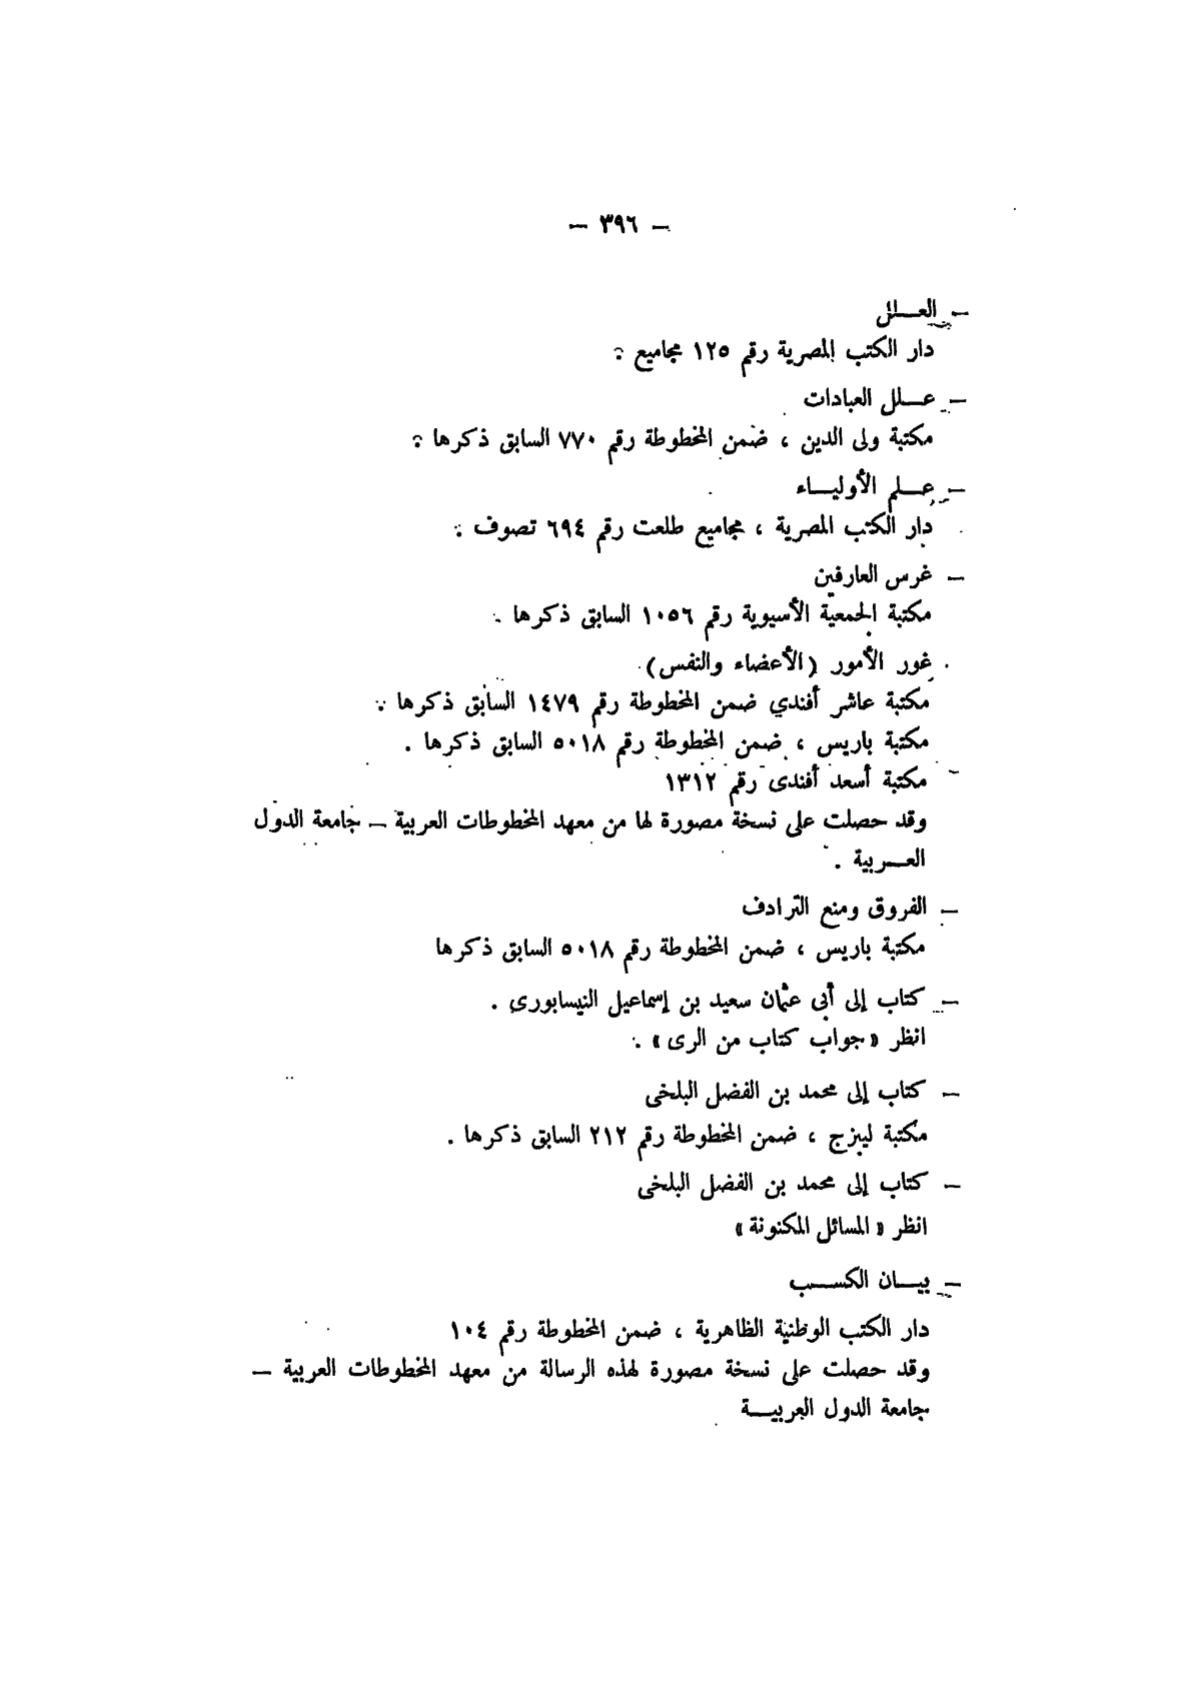 — ٣٩٦ —
— العـــلل
دار الكتب المصرية رقم ١٢٥ مجاميع .
— عـــلل العبادات
مكتبة ولى الدين ، ضمن المخطوطة رقم ٧٧٠ السابق ذكرها .
— عـــلم الأوليـــاء
دار الكتب المصرية ، مجاميع طلعت رقم ٦٩٤ تصوف .
— غرس العارفين
مكتبة الجمعية الأسيوية رقم ١٠٥٦ السابق ذكرها .
غور الأمور (الأعضاء والنفس)
مكتبة عاشر أفندي ضمن المخطوطة رقم ١٤٧٩ السابق ذكرها .
مكتبة باريس ، ضمن المخطوطة رقم ٥٠١٨ السابق ذكرها .
مكتبة أسعد أفندى رقم ١٣١٢
وقد حصلت على نسخة مصورة لها من معهد المخطوطات العربية — جامعة الدول
العـــربية .
— الفروق ومنع الترادف
مكتبة باريس ، ضمن المخطوطة رقم ٥٠١٨ السابق ذكرها
— كتاب إلى أبى عثمان سعيد بن إسماعيل النيسابورى .
انظر « جواب كتاب من الرى » .
— كتاب إلى محمد بن الفضل البلخى
مكتبة ليبزج ، ضمن المخطوطة رقم ٢١٢ السابق ذكرها .
— كتاب إلى محمد بن الفضل البلخى
انظر « المسائل المكنونة »
— بيـــان الكســـب
دار الكتب الوطنية الظاهرية ، ضمن المخطوطة رقم ١٠٤
وقد حصلت على نسخة مصورة لهذه الرسالة من معهد المخطوطات العربية —
جامعة الدول العربيـــة